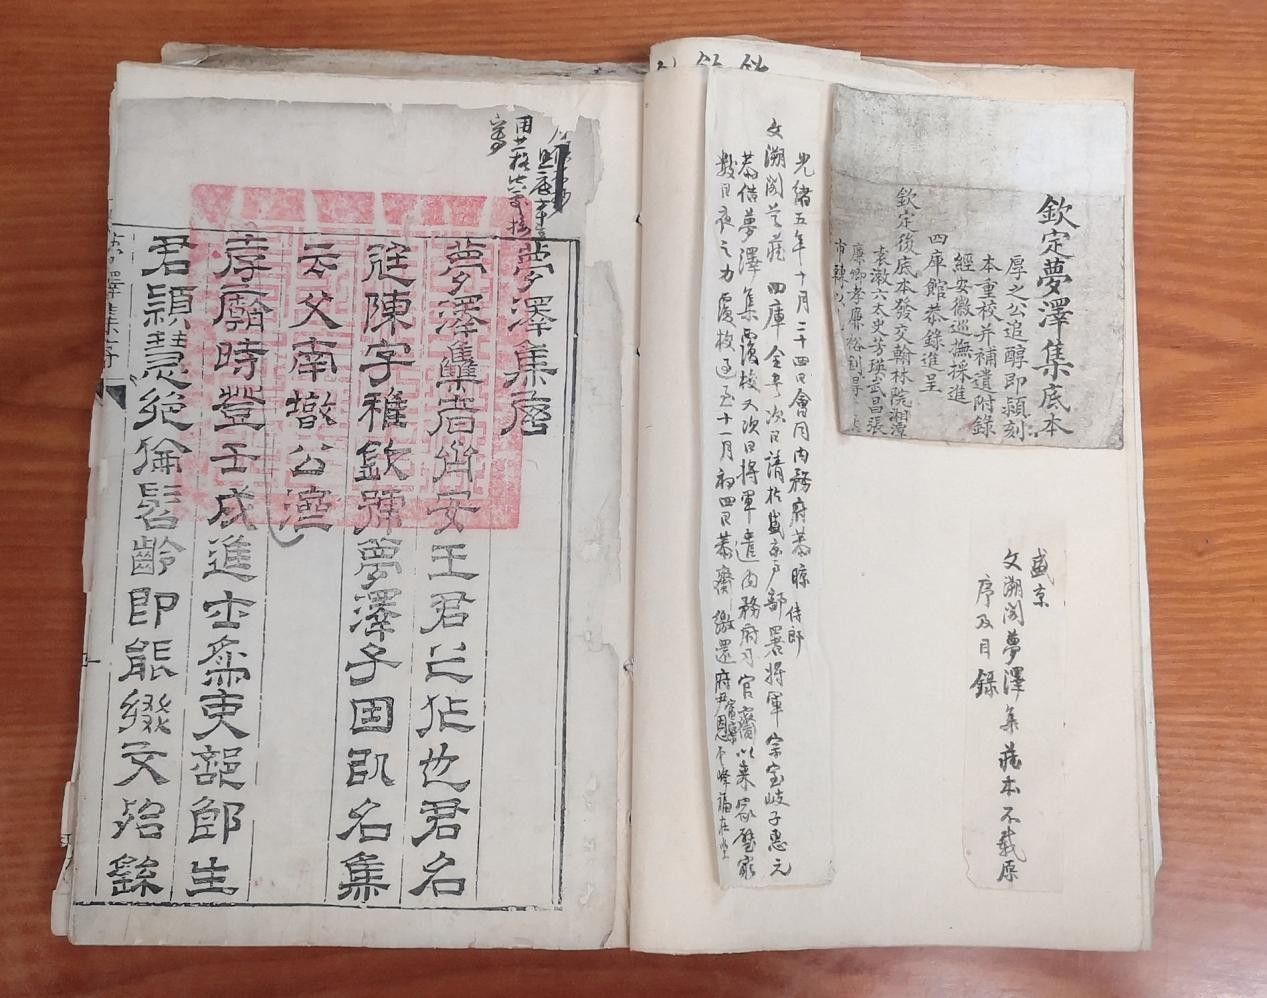 欽定夢澤集底本
厚之公追醇即穎刻
本重校并補遺附錄
經安徽巡撫採進
四庫館恭錄進呈
欽定後底本發交翰林院湘潭
袁漱六太史芳瑛武昌張
廉卿孝廉裕釗
市
盛京
文溯閣夢澤集藏本不載原
序及目錄
光緒五年十月二十四日會同內務府恭晾 侍郎
文溯閣 藏四庫全書次日請於盛京戶部署將軍宗室岐子惠元
恭借夢澤集覆校又次日將軍遣內務府司官齎以來
數日夜之力覆校過至十一月初四日恭齎繳還府尹
夢澤集序
夢澤集者齊安王君之作也君名
廷陳字穉欽號夢澤子因以名集
云父南墩公濟
孝廟時登壬戌進士爲吏部郎生
君穎慧絕倫髫齡即能綴文殆餘